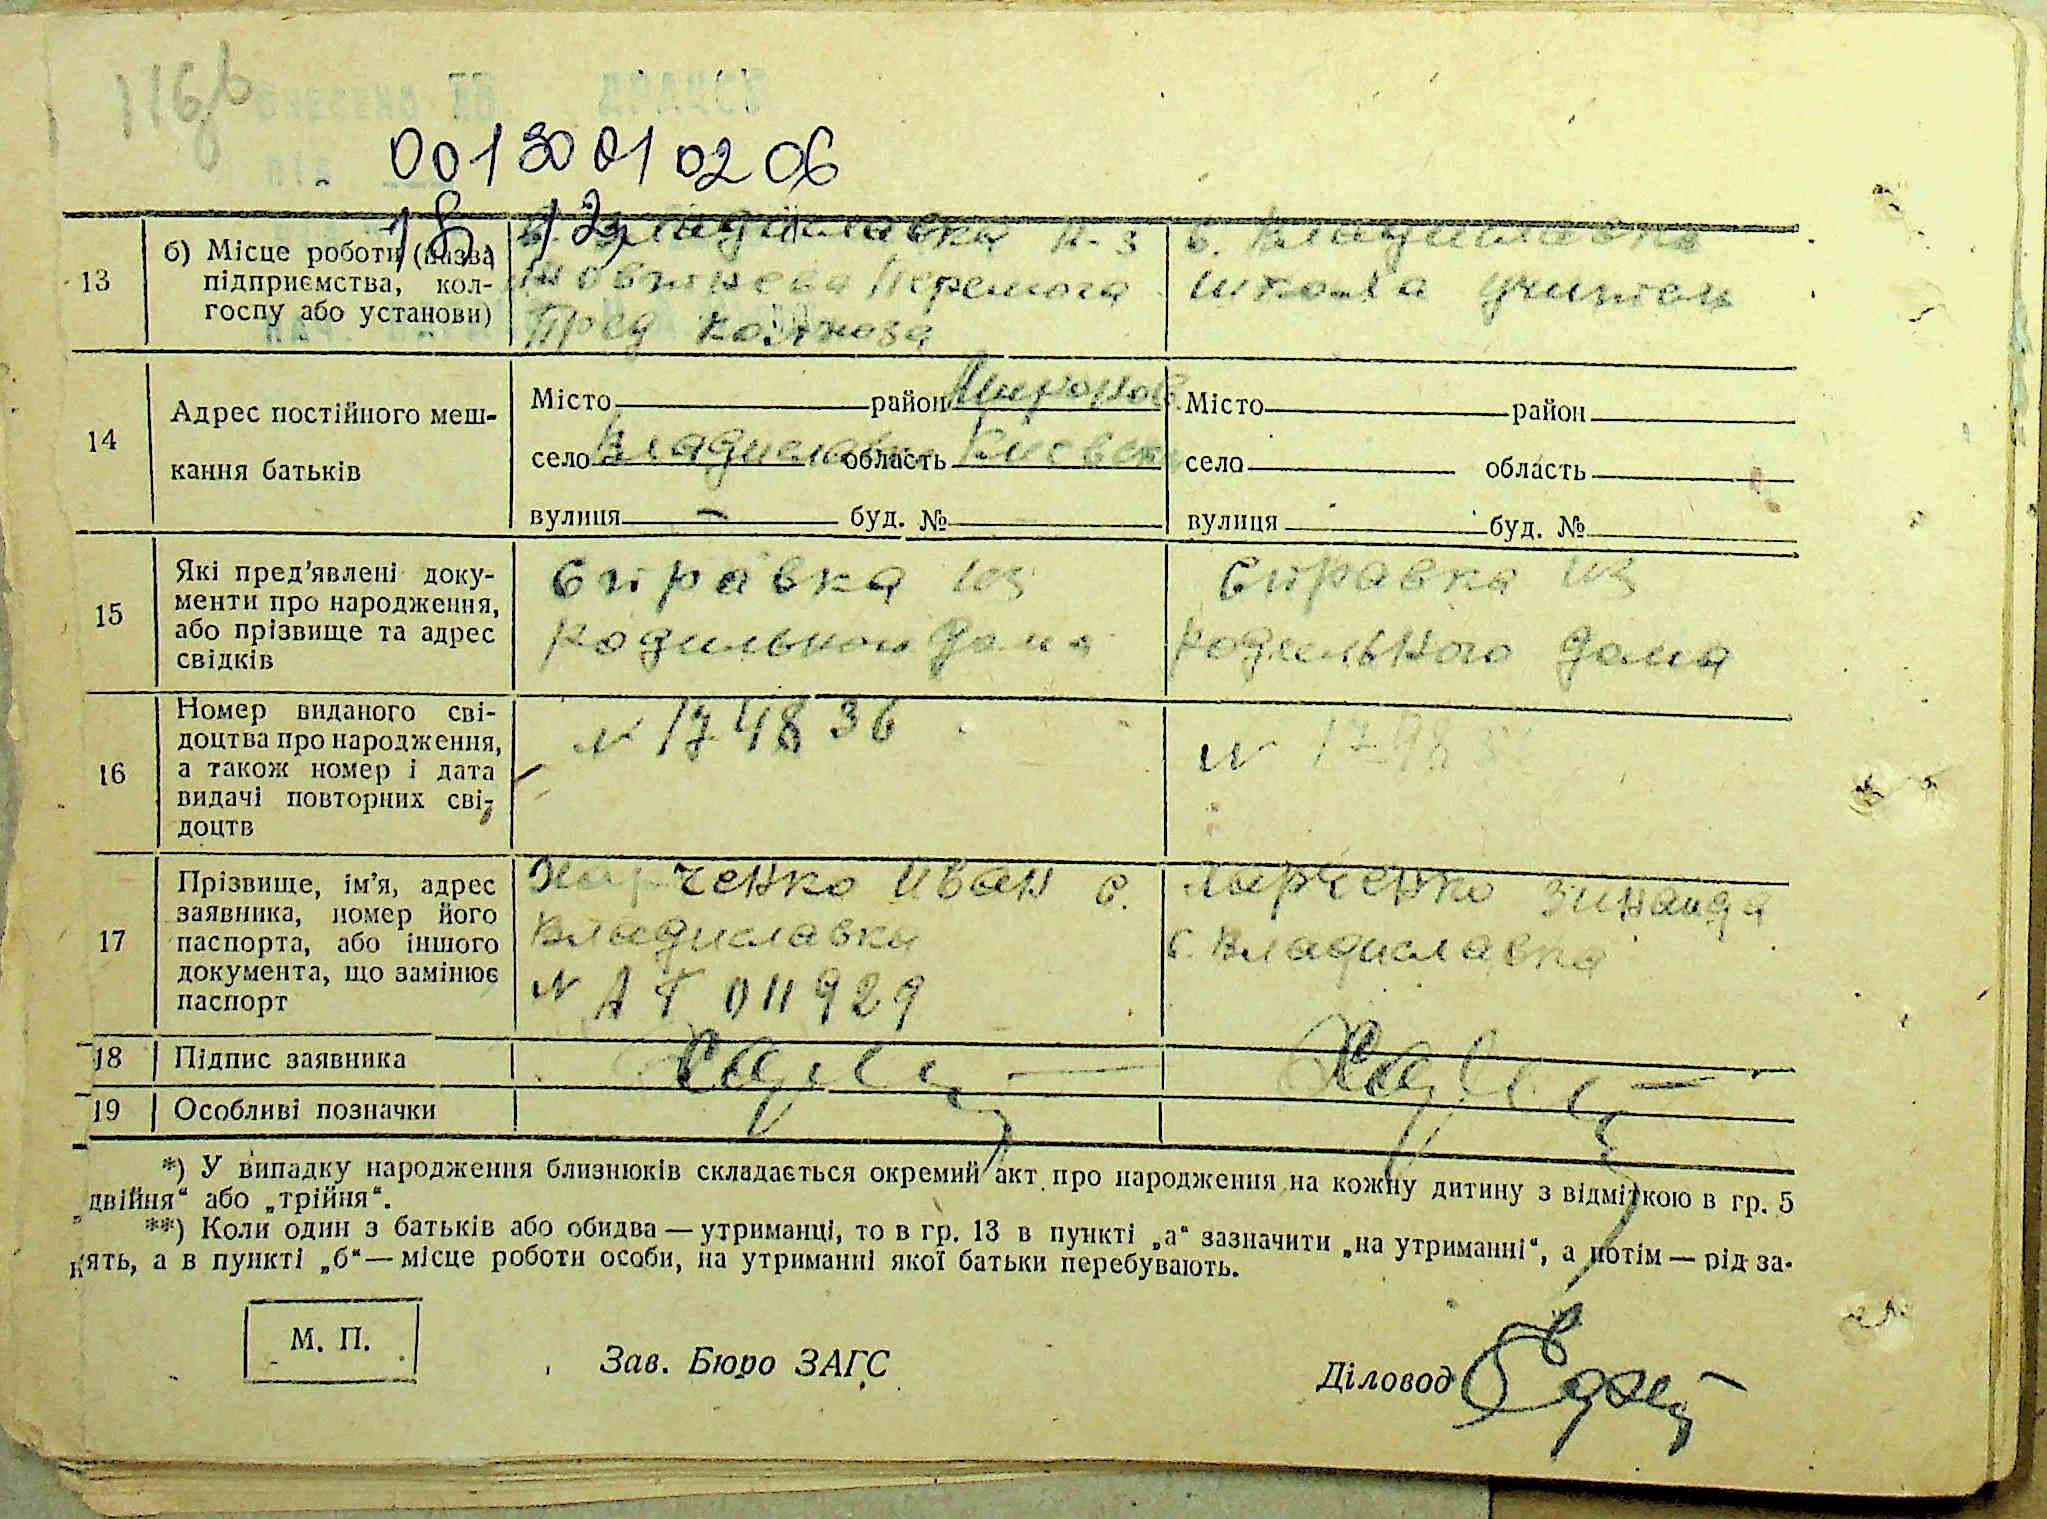 00130010206
13
б) Місце роботи (назва
підприємства, кол-
госпу або установи)
с. Владиславка к-з
Жовтнева Перемога
Пред колхоза
с. Владиславка
школа учитель
14
Адрес постійного меш-
кання батьків
Місто район Миронов.
село Владиславка область Киевск
вулиця – буд. №
Місто район
село область
вулиця буд. №
15
Які пред’явлені доку-
менти про народження,
або прізвище та адрес
свідків
Справка из
родильного дома
Справка из
родильного дома
16
Номер виданого сві-
доцтва про народження,
а також номер і дата
видачі повторних сві-
доцтв
N 174836
N
17
Прізвище, ім’я, адрес
заявника, номер його
паспорта, або іншого
документа, що замінює
паспорт
Харченко Иван с.
Владиславка
N АГ 011929
Харченко Зинаида
с. Владиславка
18
Підпис заявника
19
Особливі позначки
*) У випадку народження близнюків складається окремий акт про народження на кожну дитину з відміткою в гр. 5
„двійня“ або „трійня“.
**) Коли один з батьків або обидва — утриманці, то в гр. 13 в пункті „а“ зазначити „на утриманні“, а потім — рід за-
нять, а в пункті „б“ — місце роботи особи, на утриманні якої батьки перебувають.
М. П.
Зав. Бюро ЗАГС
Діловод